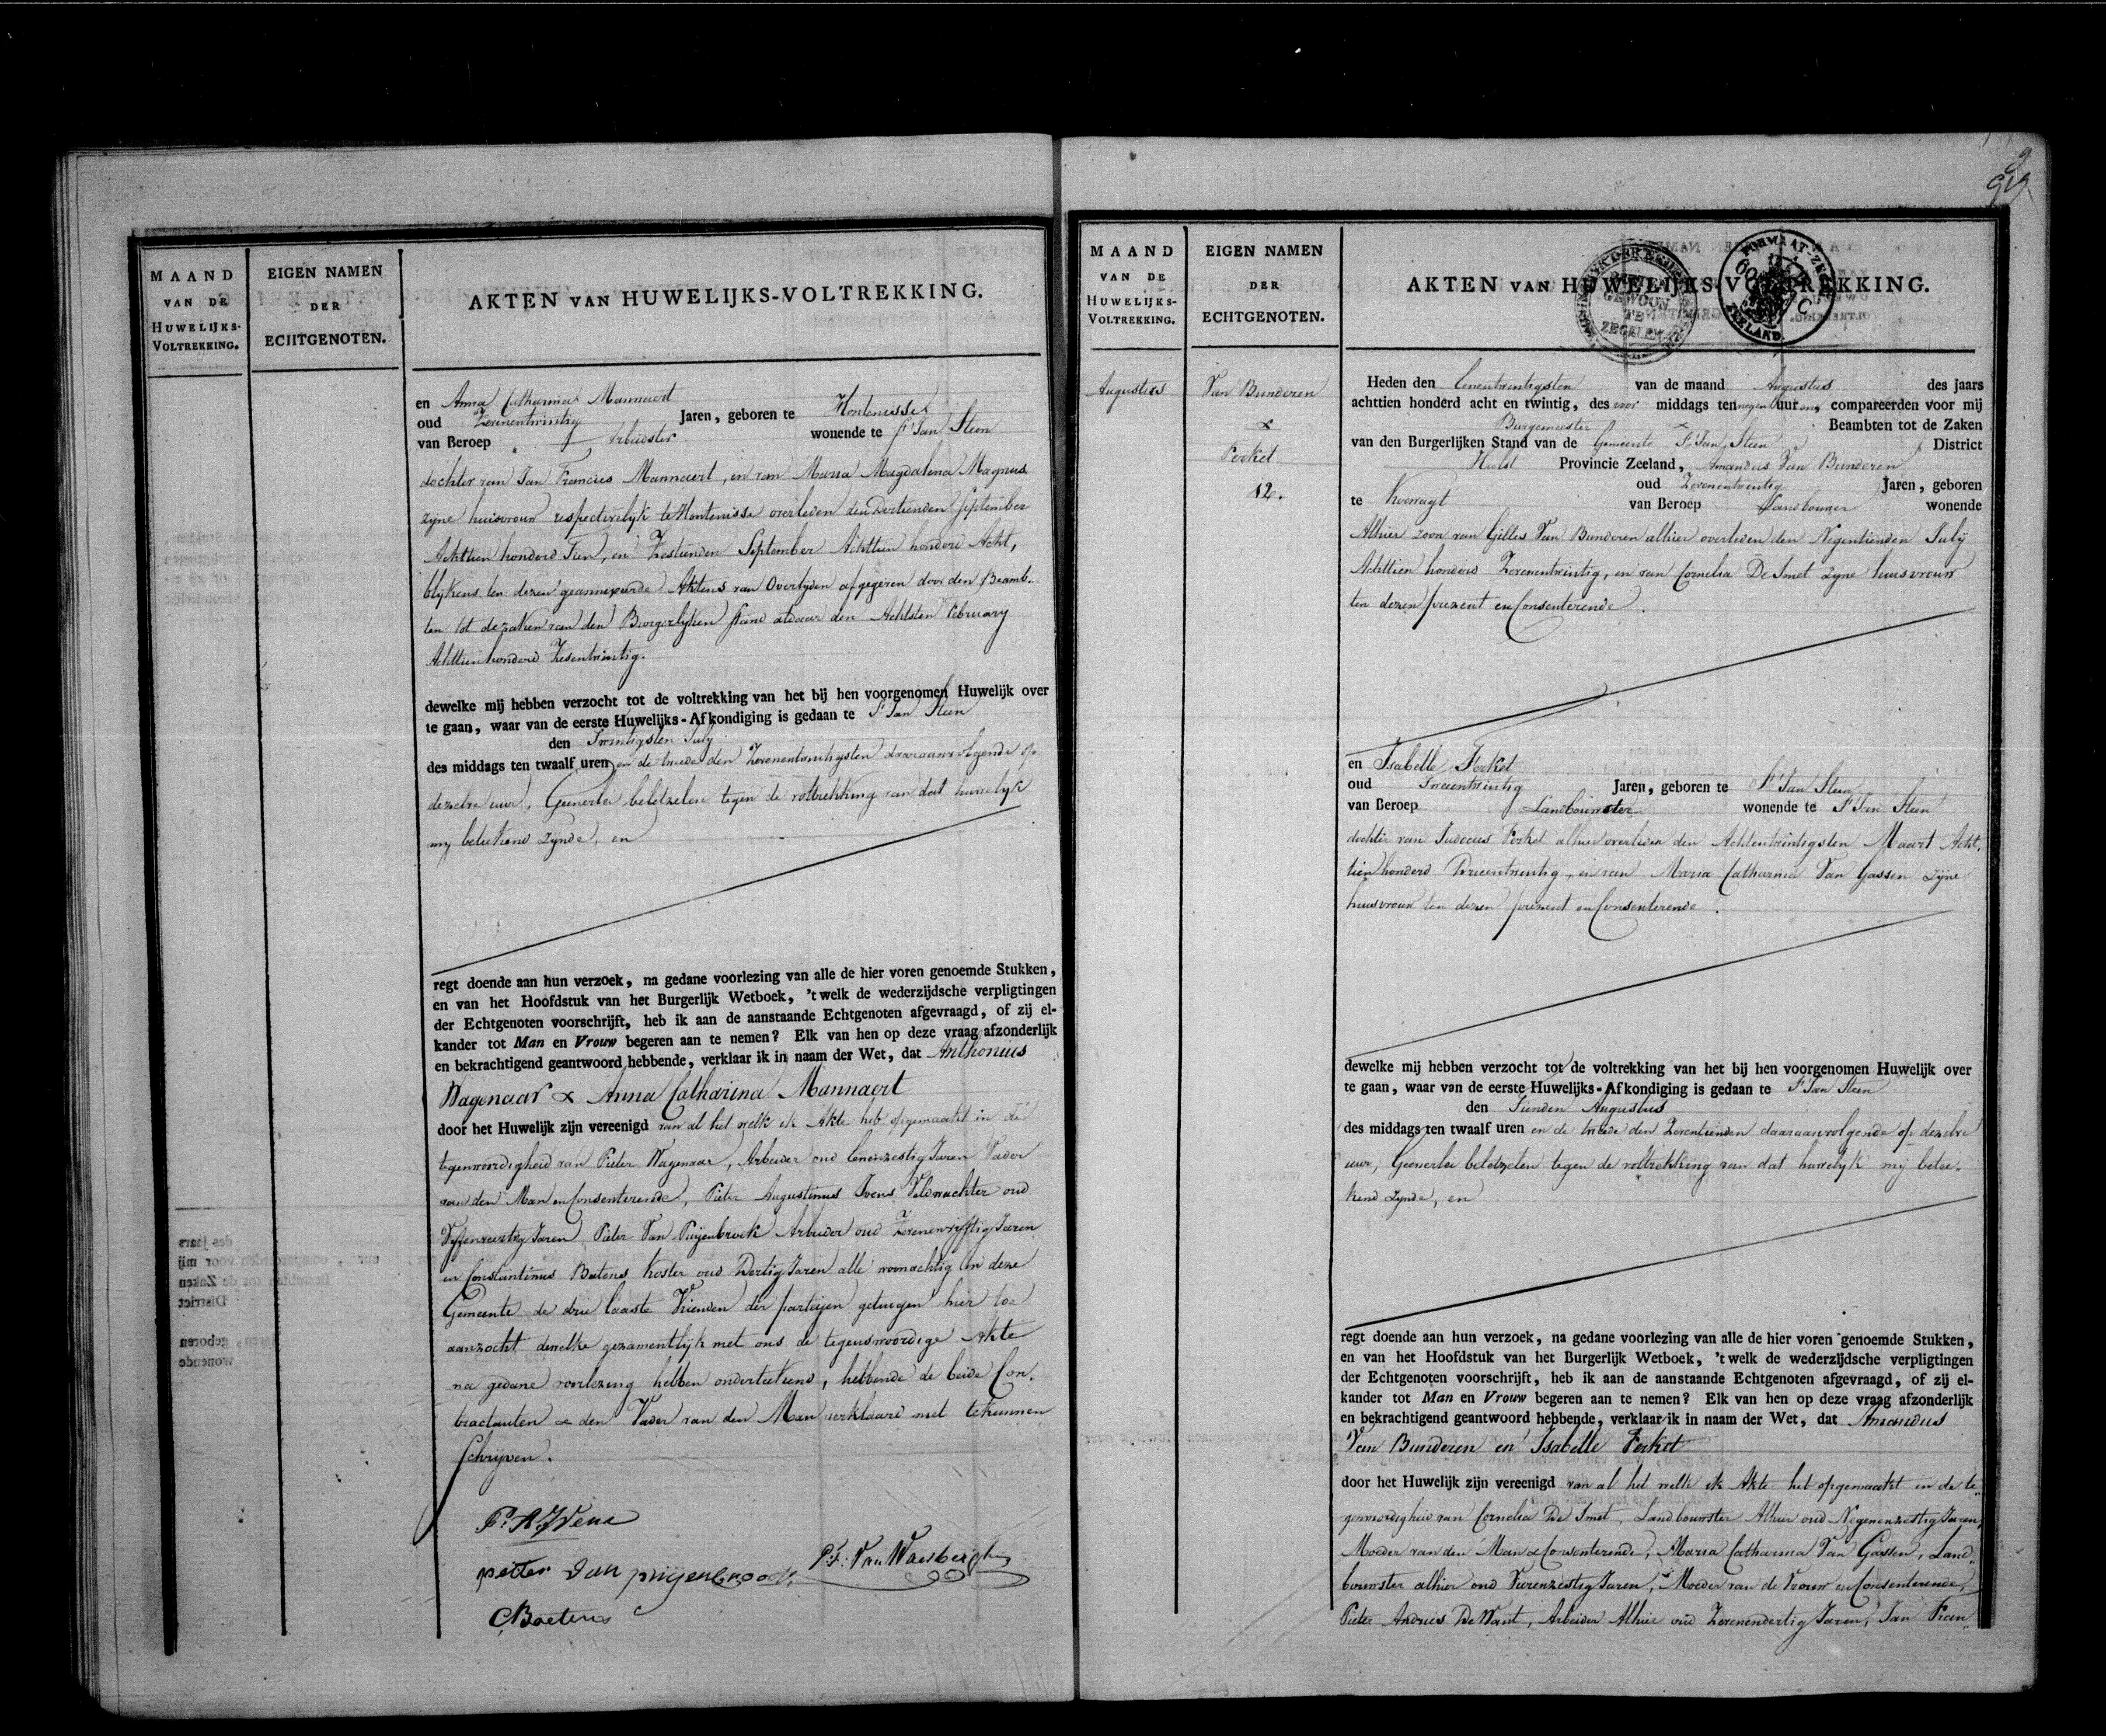 MAAND
VAN DE
HUWELIJKS-
VOLTREKKING.
EIGEN NAMEN
DER
ECHTGENOTEN.
AKTEN VAN HUWELIJKS-VOLTREKKING.
en Anna Catharina Mannaert
oud Zevenentwintig Jaren, geboren te Hontenisse
van Beroep Arbeidster wonende te St Jan Steen
dochter van Jan Francies Mannaert, en van Maria Magdalena Magnus
zyne huisvrouw respectivelyk te Hontenisse overleden den Dertienden September
Achttien honderd Tien, en Zestienden September Achttien honderd Acht,
blykens ten dezen geannexeerde Aktens van Overlyden afgegeven door den Beamb-
ten tot de zaken van den Burgerlyken Stand aldaar den Achtsten February
Achttien honderd Zesentwintig.
dewelke mij hebben verzocht tot de voltrekking van het bij hen voorgenomen Huwelijk over
te gaan, waar van de eerste Huwelijks-Afkondiging is gedaan te St Jan Steen
den Twintigsten July
des middags ten twaalf uren en de tweede den Zevenentwintigsten daaraanvolgende op
dezelve uur, Geenerlei beletzelen tegen de voltrekking van dat huwelyk
my betekend zynde, en
regt doende aan hun verzoek, na gedane voorlezing van alle de hier voren genoemde Stukken,
en van het Hoofdstuk van het Burgerlijk Wetboek, 't welk de wederzijdsche verpligtingen
der Echtgenoten voorschrijft, heb ik aan de aanstaande Echtgenoten afgevraagd, of zij el-
kander tot Man en Vrouw begeren aan te nemen? Elk van hen op deze vraag afzonderlijk
en bekrachtigend geantwoord hebbende, verklaar ik in naam der Wet, dat Anthonius
Wagenaar & Anna Catharina Mannaert
door het Huwelijk zijn vereenigd van al het welk ik Akte heb opgemaakt in de
tegenwoordigheid van Pieter Wagenaar, Arbeider oud Eenenzestig Jaren Vader
van den Man en Consenterende, Pieter Augustinus Ivens Veldwachter oud
Jaren Pieter Van Puijenbroek Arbeider oud Zevenenvyftig Jaren
en Constantinus Baetens Koster oud Dertig Jaren alle woonachtig in deze
Gemeente de drie laaste Vrienden der partijen getuigen hier toe
aanzocht dewelke gezamentlyk met ons de tegenswoordige Akte
na gedane voorlezing hebben onderteekend, hebbende de beide Con-
tractanten & den Vader van den Man verklaard niet te kunnen
Schryven.
P. A. Ivens
P. F. Van Waesberghe
pieter van puijenbroeck
C Baetens
MAAND
VAN DE
HUWELIJKS-
VOLTREKKING.
EIGEN NAMEN
DER
ECHTGENOTEN.
AKTEN VAN HUWELIJKS-VOLTREKKING.
GEWOON
TE
ZEGELEN
FORMAAT-ZEGEL
ZEELAND
Augustus
Van Bunderen
&
Ferket
12.
Heden den Eenentwintigsten van de maand Augustus des jaars
achttien honderd acht en twintig, des voor middags ten negen uuren, compareerden voor mij
Burgemeester Beambten tot de Zaken
van den Burgerlijken Stand van de Gemeente St Jan Steen District
Hulst Provincie Zeeland, Amandus Van Bunderen
oud Zevenentwintig Jaren, geboren
te van Beroep Landbouwer wonende
Alhier zoon van Gilles Van Bunderen alhier overleden den Negentienden July
Achttien honderd Zevenentwintig, en van Cornelia De Smet zyne huisvrouw
ten dezen prezent en Consenterende.
en Isabelle Ferket
oud Tweentwintig Jaren, geboren te St Jan Steen
van Beroep Landbouwster wonende te St Jan Steen
dochter van Judocus Ferket alhier overleden den Achtentwintigsten Maart Acht-
tien honderd Drieentwintig, en van Maria Catharina Van Gassen zyne
huisvrouw ten dezen prezent en Consenterende.
dewelke mij hebben verzocht tot de voltrekking van het bij hen voorgenomen Huwelijk over
te gaan, waar van de eerste Huwelijks-Afkondiging is gedaan te St Jan Steen
den Tienden Augustus
des middags ten twaalf uren en de tweede den Zeventienden daaraanvolgende op dezelve
uur, Geenerlei beletzelen tegen de voltrekking van dat huwelyk my betee-
kend zynde, en
regt doende aan hun verzoek, na gedane voorlezing van alle de hier voren genoemde Stukken,
en van het Hoofdstuk van het Burgerlijk Wetboek, 't welk de wederzijdsche verpligtingen
der Echtgenoten voorschrijft, heb ik aan de aanstaande Echtgenoten afgevraagd, of zij el-
kander tot Man en Vrouw begeren aan te nemen? Elk van hen op deze vraag afzonderlijk
en bekrachtigend geantwoord hebbende, verklaar ik in naam der Wet, dat Amandus
Van Bunderen en Isabelle Ferket
door het Huwelijk zijn vereenigd van al het welk ik Akte heb opgemaakt in de te-
genwoordigheid van Cornelia De Smet, Landbouwster Alhier oud Negenenzestig Jaren,
Moeder van den Man & Consenterende, Maria Catharina Van Gassen, Land-
bouwster alhier oud Vierenzestig Jaren, Moeder van de Vrouw en Consenterende,
Pieter Andries De Waut, Arbeider Alhier oud Zevenendertig Jaren, Jan Fran-